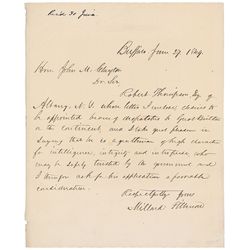 Recd 30 June
Buffalo June 27, 1849.
Hon. John M. Clayton
Dr Sir
Robert Thompson, Esq of
Albany N.Y. whose letter I inclose desires to
be appointed bearer of despatches to Great Britain
or the continent, and I take great pleasure in
saying that he is a gentleman of high character
for intelligence, integrity and enterprise, who
may be safely trusted by the government and
I ask for his application a favorable
consideration.
Respectfully yours
Millard Fillmore